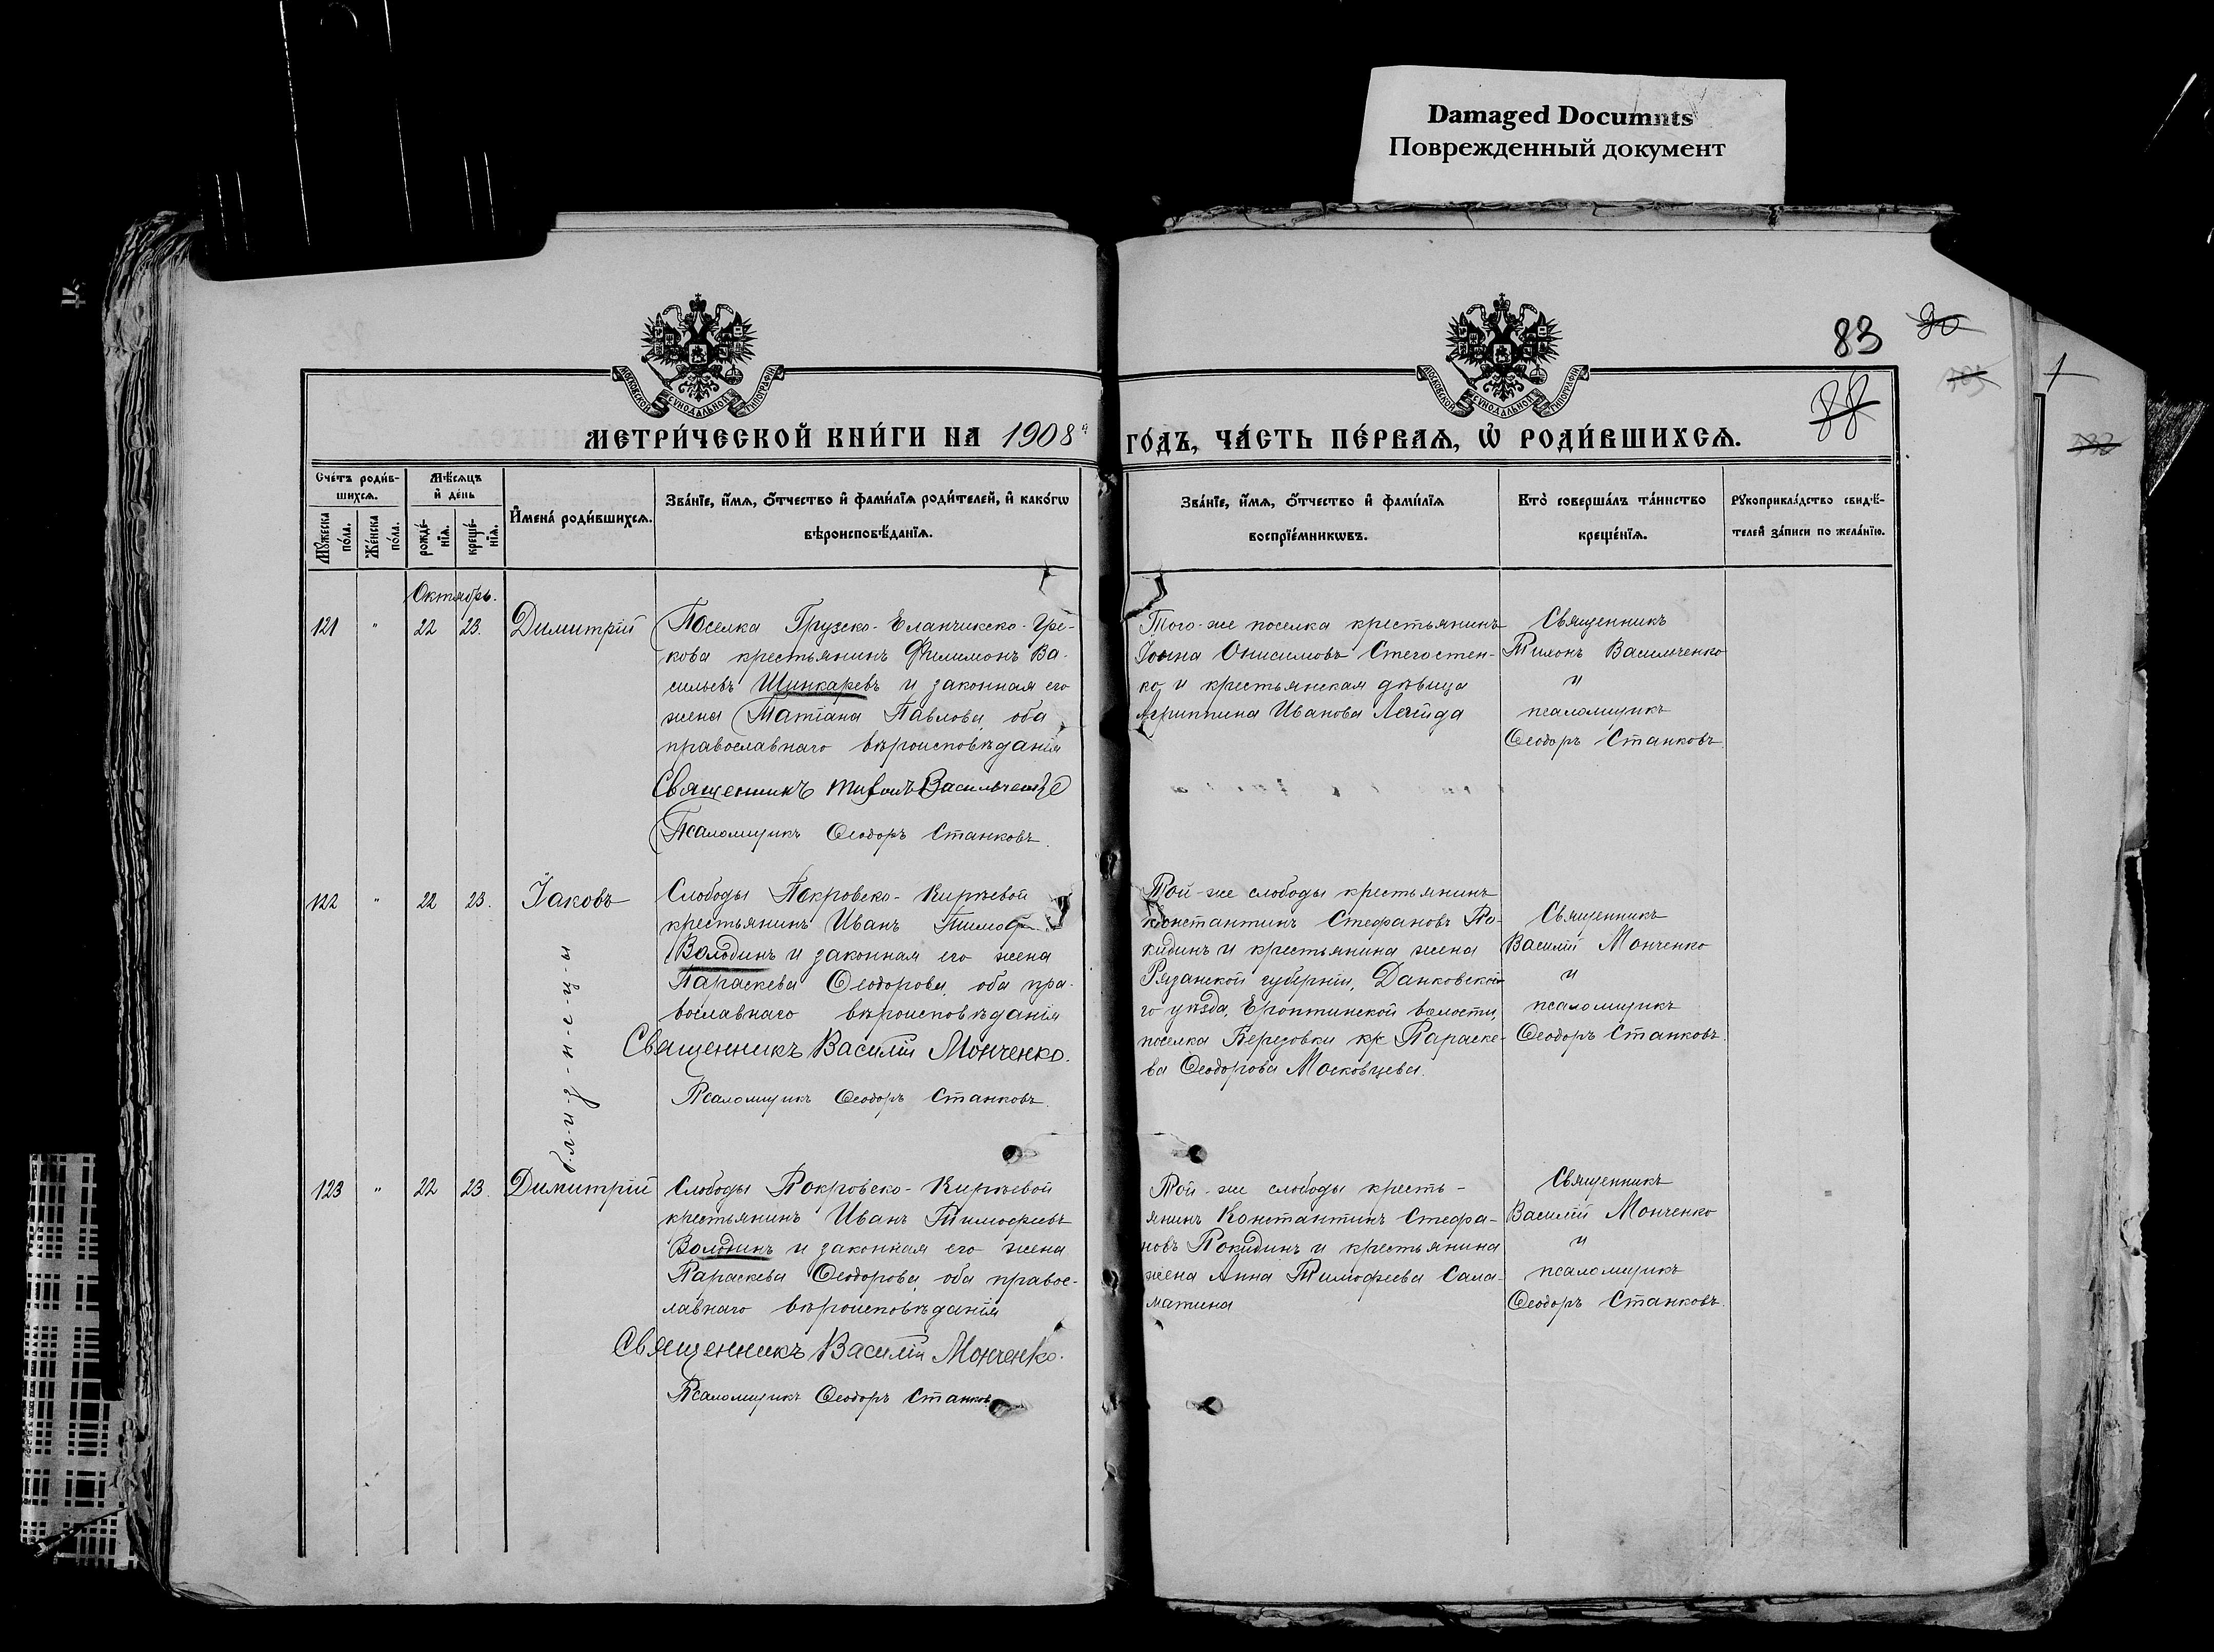 Damaged Documnts
Поврежденный документ
83
20
88
МОСКОВСКОЙ СѴНОДАЛЬНОЙ ТИПОГРАФІИ
МОСКОВСКОЙ СѴНОДАЛЬНОЙ ТИПОГРАФІИ
МЕТРИ́ЧЕСКОЙ КНИ́ГИ НА 1908 ГО́ДЪ, ЧА́СТЬ ПЕ́РВАѦ, Ѡ РОДИ́ВШИХСѦ.
Сче́тъ роди́в-
шихсѧ.
Мѣ́сѧцъ
и де́нь
Мꙋ́жеска по́ла.
Же́нска по́ла.
рожде́-
нїѧ.
креще́-
нїѧ.
Имена́ роди́вшихсѧ.
Зва́нїе, и́мѧ, о́тчество и фами́лїѧ роди́телей, и како́гѡ
вѣроисповѣ́данїѧ.
Зва́нїе, и́мѧ, о́тчество и фами́лїѧ
воспрїе́мникѡвъ.
Кто̀ соверша́лъ та́инство
креще́нїѧ.
Рꙋкоприкла́дство свидѣ́-
телей за́писи по жела́нїю.
Октябрь.
121 " 22 23. Димитрій
Поселка Грузско-Еланчикско-Гре-
кова крестьянинъ Филимонъ Ва-
сильевъ Шинкаревъ и законная его
жена Татіана Павлова, оба
православнаго вѣроисповѣданія
Священникъ Тихонъ Васильченко
Псаломщикъ Ѳеодоръ Станковъ.
Того-же поселка крестьянинъ
Іоанна Онисимовъ Стегостен-
ко и крестьянская дѣвица
Агриппина Иванова Легида
Священникъ
Тихонъ Васильченко
и
псаломщикъ
Ѳеодоръ Станковъ.
122 " 22 23. Іаковъ
Слободы Покровско-Кирѣевой
крестьянинъ Иванъ Тимоф
Володинъ и законная его жена
Параскева Ѳеодорова, оба пра-
вославнаго вѣроисповѣданія
Священникъ Василій Монченко.
Псаломщикъ Ѳеодоръ Станковъ.
Той-же слободы крестьянинъ
Константинъ Стефановъ По-
кидинъ и крестьянина жена
Рязанской губерніи, Данковска
го уѣзда, Ероптинской волости,
поселка Березовки кр. Параске-
ва Ѳеодорова Московцева.
Священникъ
Василій Монченко
и
псаломщикъ
Ѳеодоръ Станковъ.
б-л-и-з-н-е-ц-ы
123 " 22 23. Димитрій
Слободы Покровско-Кирѣевой
крестьянинъ Иванъ Тимофеевъ
Володинъ и законная его жена
Параскева Ѳеодорова, оба правос-
лавнаго вѣроисповѣданія
Священникъ Василій Монченко.
Псаломщикъ Ѳеодоръ Станков
Той-же слободы кресть-
янинъ Константинъ Стефа-
новъ Покидинъ и крестьянина
жена Анна Тимофеева Сала-
матина
Священникъ
Василій Монченко
и
псаломщикъ
Ѳеодоръ Станковъ.